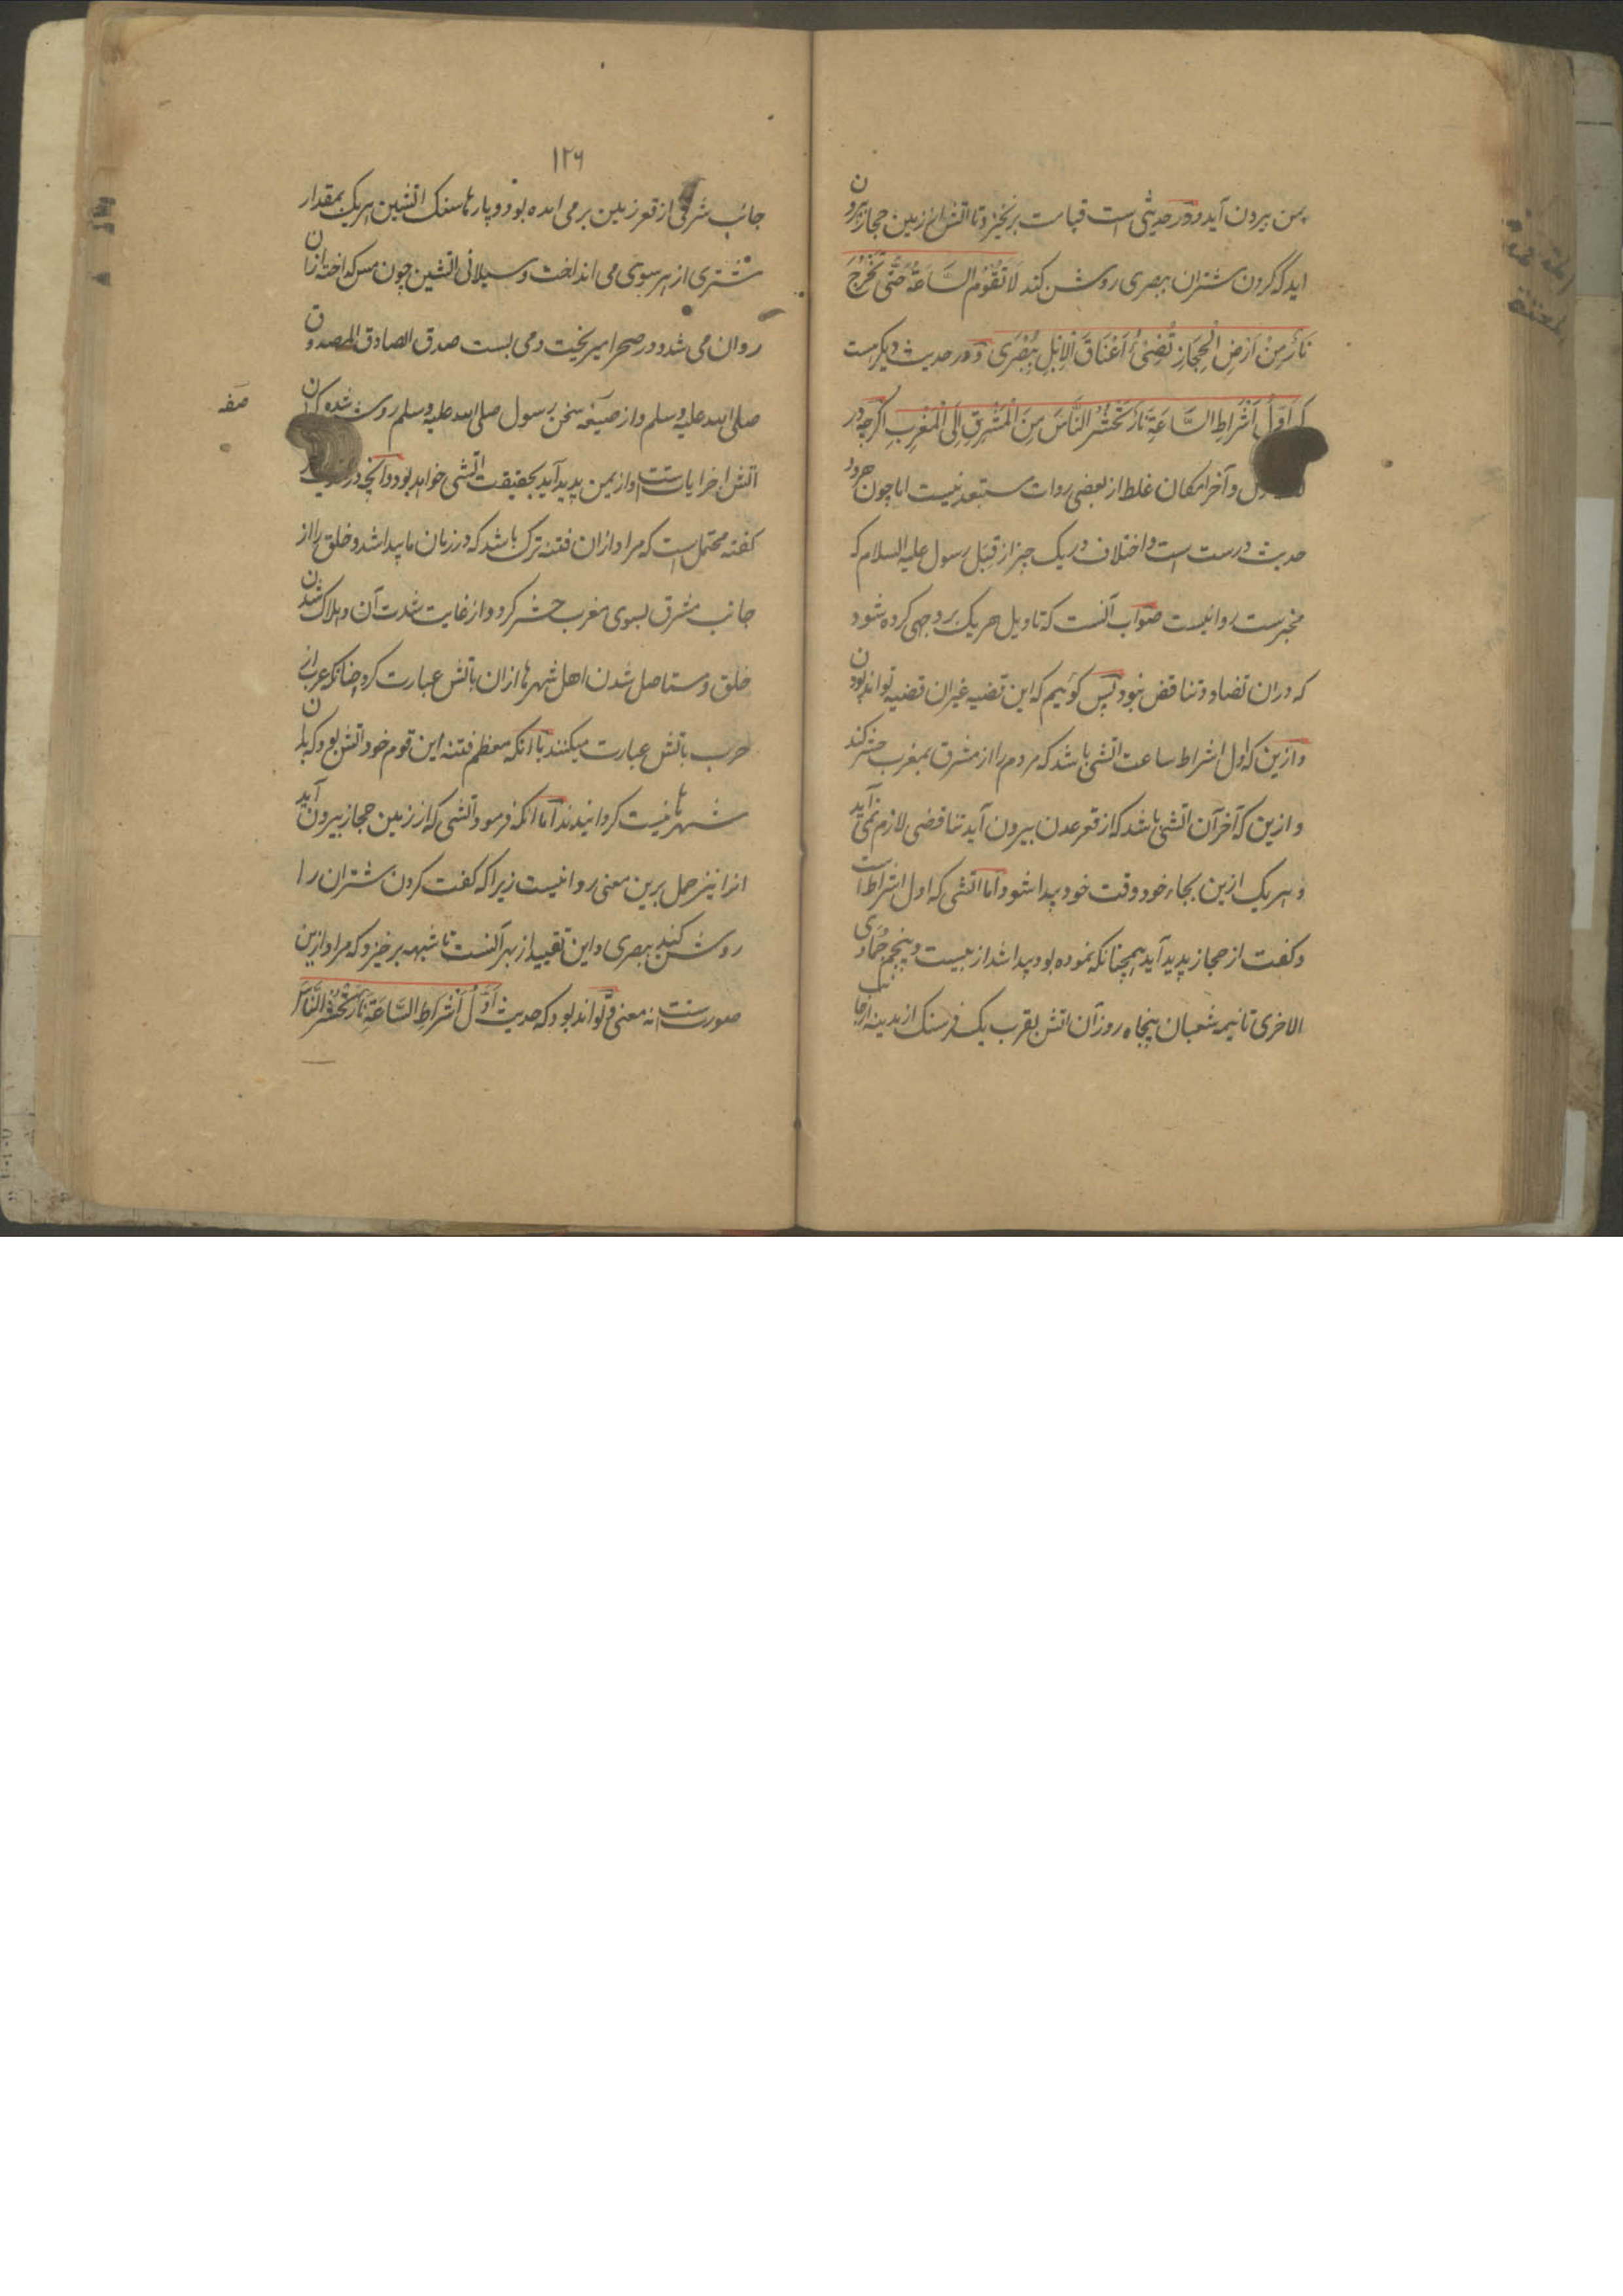 یمن بیرون آید و در حدیثی است قیامت برنخیزد تا اتش از زمین حجاز بیرون
اید که کردن شتران ببصری روشن کند لَا تَقُوْمُ السَّاعَةُ حَتّٰی تَخْرُجَ
نَارٌ مِنْ اَرْضِ الْحِجَازِ تُضِیْٔ اَعْنَاقَ الْاِبِلِ بِبُصْرٰی و در حدیث دیکرست
که اَوَّلُ اَشْرَاطِ السَّاعَةِ نَارٌ تَحْشُرُ النَّاسَ مِنَ الْمَشْرِقِ اِلَی الْمَغْرِبِ اکرچه در
اول و آخر امکان غلط از بعضی روات مستبعد نیست اما چون هر دو
حدیث درست است و اختلاف در یک چیز از قِبَل رسول علیه السلام که
مخبرست روا نیست صواب آنست که تاویل هر یک بر وجهی کرده شود
که دران تضاد و تناقض نبود پس کوئیم که این قضیه غیر ان قضیه تواند بودن
و ازین که اول اشراط ساعت اتشی باشد که مردم را از مشرق بمغرب حشر کند
و ازین که آخر آن اتشی باشد که از قعر عدن بیرون آید تناقضی لازم نمی آید
و هر یک ازین بجاء خود و وقت خود پیدا شود اما اتشی که اول اشراط است
و کفت از حجاز پدید آید همچنانکه نموده بود پیدا شد از بیست و پنجم جمادی
الاخری تا نیمه شعبان پنجاه روز آن اتش بقرب یک فرسنک از مدینه از جانب
۱۲۶
جانب شرقی از قعر زمین برمی امده بود و پارها سنک اتشین هر یک بمقدار
شتری از هر سوی می انداخت و سیلانی اتشین چون مس کداخته ازان
روان می شد و در صحرا میریخت و می بست صدق الصادق المصدوق
صلی الله علیه وسلم و از صیغه سخن رسول صلی الله علیه وسلم روشن شده که ان
اتش اخر ایات است و از یمن پدید آید بحقیقت اتشی خواهد بود و آنچه در
کفته محتمل است که مراد ازان فتنه ترک باشد که در زمان ما پیدا شد و خلق را از
جانب مشرق بسوی مغرب حشر کرد و از غایت شدت آن و هلاک شدن
خلق و مستاصل شدن اهل شهرها ازان باتش عبارت کرد چنانکه عرب از
حرب باتش عبارت میکنند با انکه معظم فتنه این قوم خود اتش بود که بان
شهرها نیست کردانیدند اما انکه فرمود اتشی که از زمین حجاز بیرون آید
انرا نیز حمل برین معنی روا نیست زیرا که کفت کردن شتران را
روشن کند ببصری و این تقیید از بهر آنست تا شبهه برخیزد که مراد ازین
صورتست نه معنی و تواند بود که حدیث اَوَّلُ اَشْرَاطِ السَّاعَةِ نَارٌ تَحْشُرُ النَّاسَ